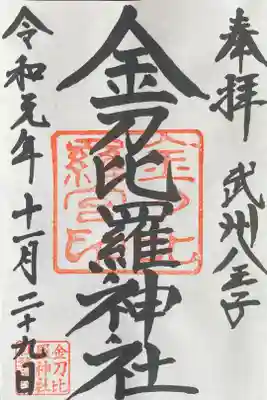 奉拝
武州八王子
金刀比羅神社
金刀比
羅宮印
令和元年十一月二十九日
金刀比
羅神社